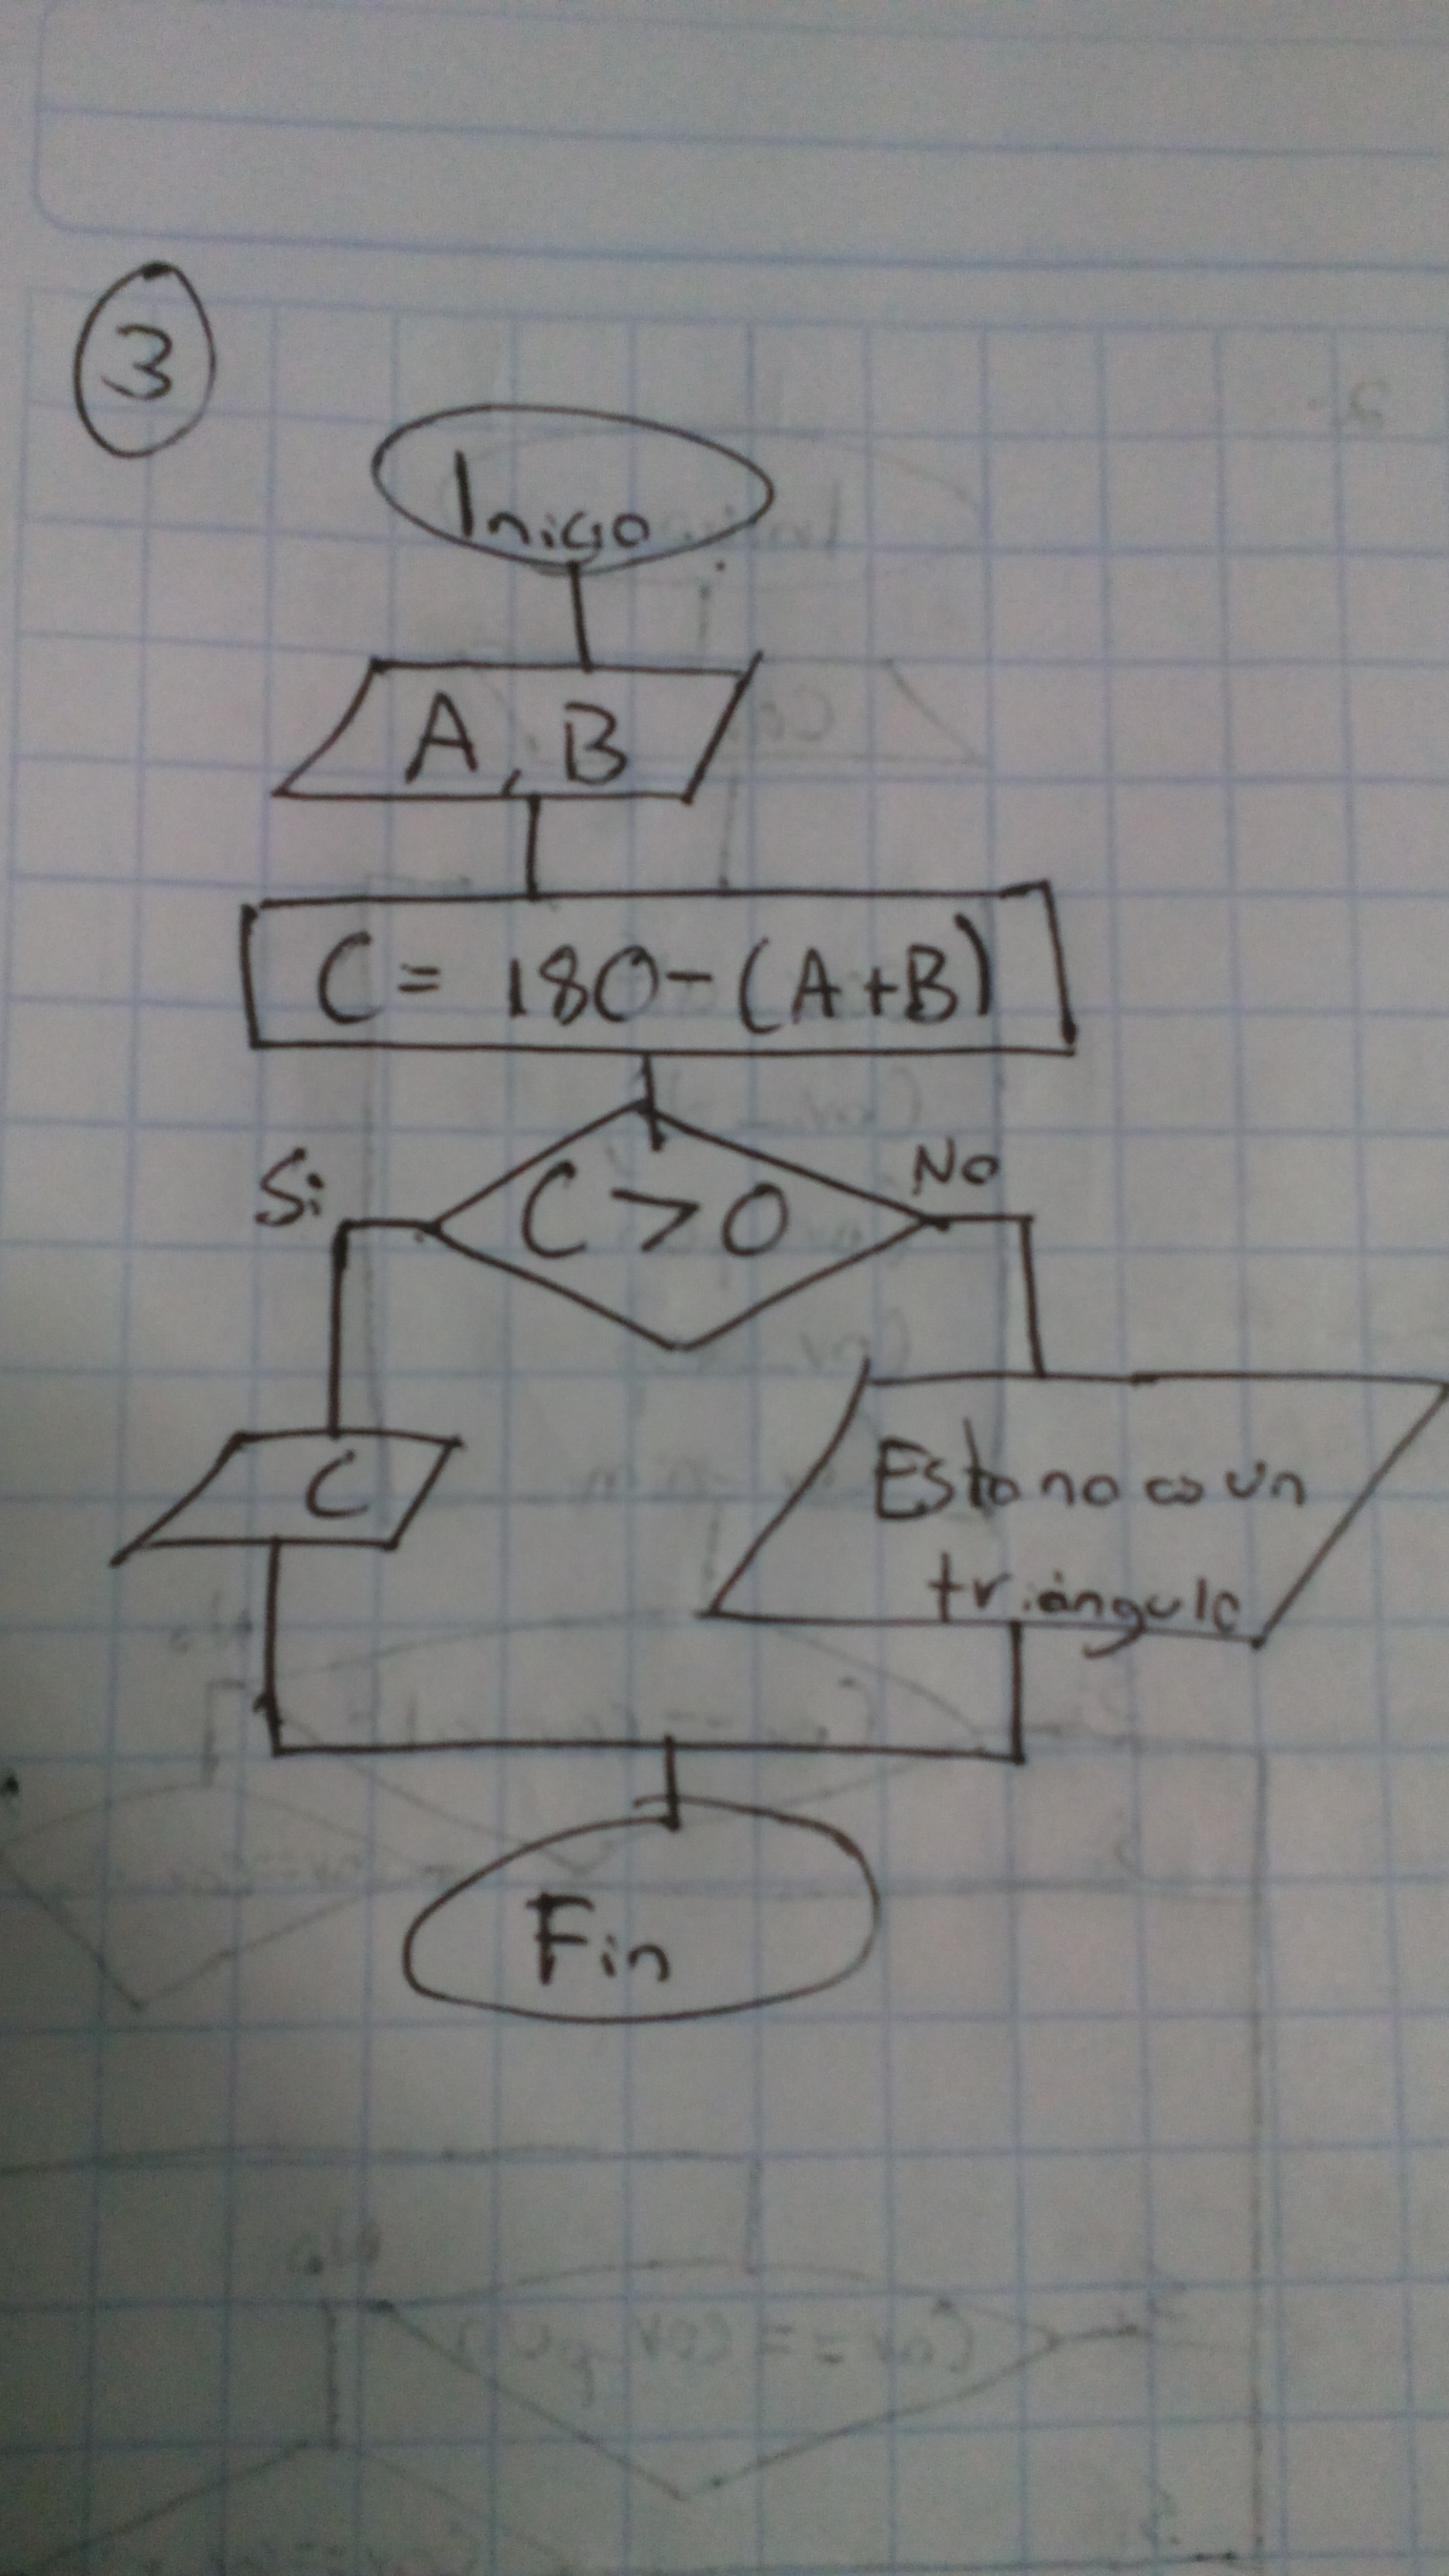 3
Inicio
A, B
C = 180-(A+B)
Si
No
C > 0
C
Esto no es un
triángulo
Fin